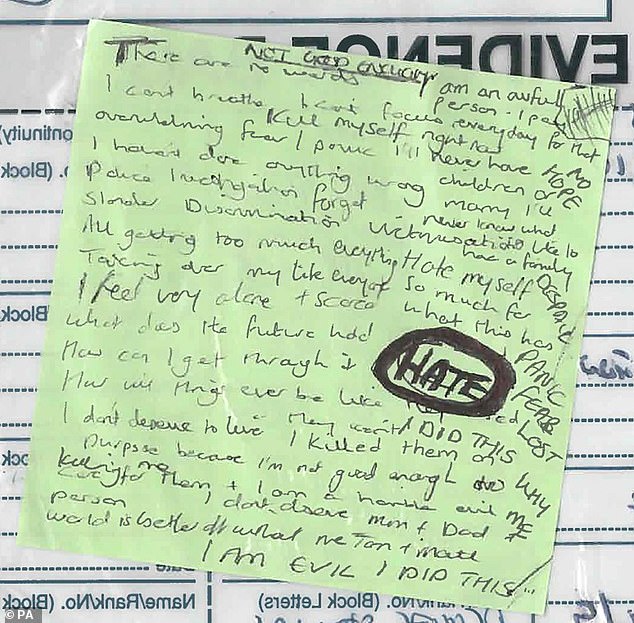 EVIDENCE
NOT GOOD ENOUGH
There are no words I am an awful person
I can't breathe I can't focus everyday for that
Kill myself right now
overwhelming fear I panic I'll never have children or
I haven't done anything wrong marry I'll
Police investigation forget never know what
Slander Discrimination Victimisation like to have a family
All getting too much everything Hate myself so much for
Taking over my life everyone what this has
I feel very alone + scared
What does the future hold
How can I get through it
HATE
How will things ever be like
I don't deserve to live I killed them on
purpose because I'm not good enough
care for them + I am a horrible evil
person I don't deserve mum + Dad
killing me
world is better off without me
I AM EVIL I DID THIS
NO
HOPE
DESPAIR
PANIC
FEAR
LOST
I DID THIS
WHY
ME
Name/Rank/No. (Block
(Block Letters)
Name/Rank/No. (Block
© PA